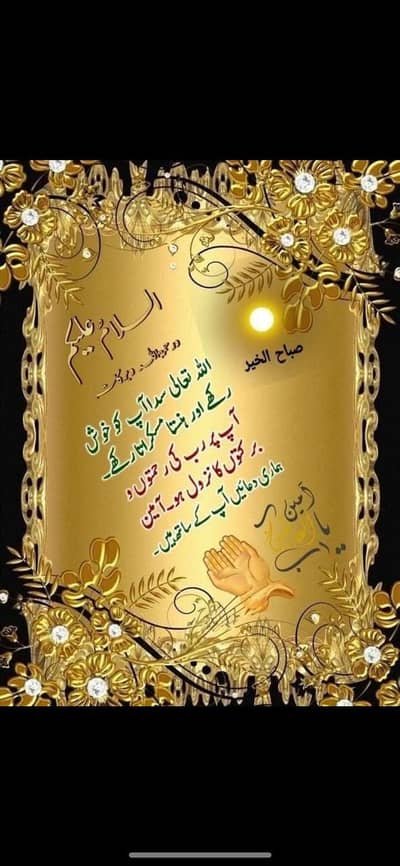 السلام علیکم
ورحمۃ اللہ وبرکاتہ
صباح الخير
اللہ تعالیٰ سدا آپ کو خوش
رکھے اور ہنستا مسکراتا رکھے۔
آپ پر رب کی رحمتوں و
برکتوں کا نزول ہو۔ آمین
ہماری دعائیں آپ کے ساتھ ہیں۔
آمین
یارب